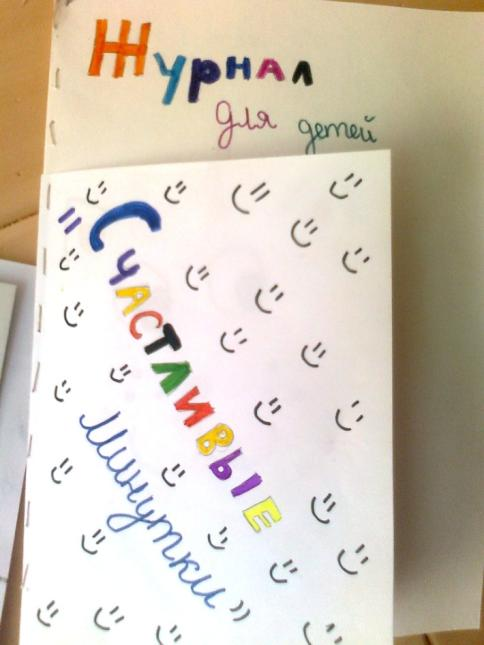 Журнал
для детей
"Счастливые
минутки"